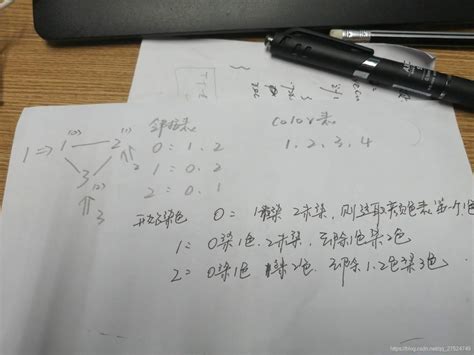 邻接表 color表
(0) (1)
1⇒ 1 — 2 0 = 1、2 1、2、3、4
2 1 = 0、2
3 (2) 2 = 0、1
3
开始染色 0 = 1未染 2未染,则选取颜色表第一个色
1 = 0染1色、2未染,删除1色染2色
2 = 0染1色 1染2色、删除1、2色染3色
https://blog.csdn.net/qq_21524749